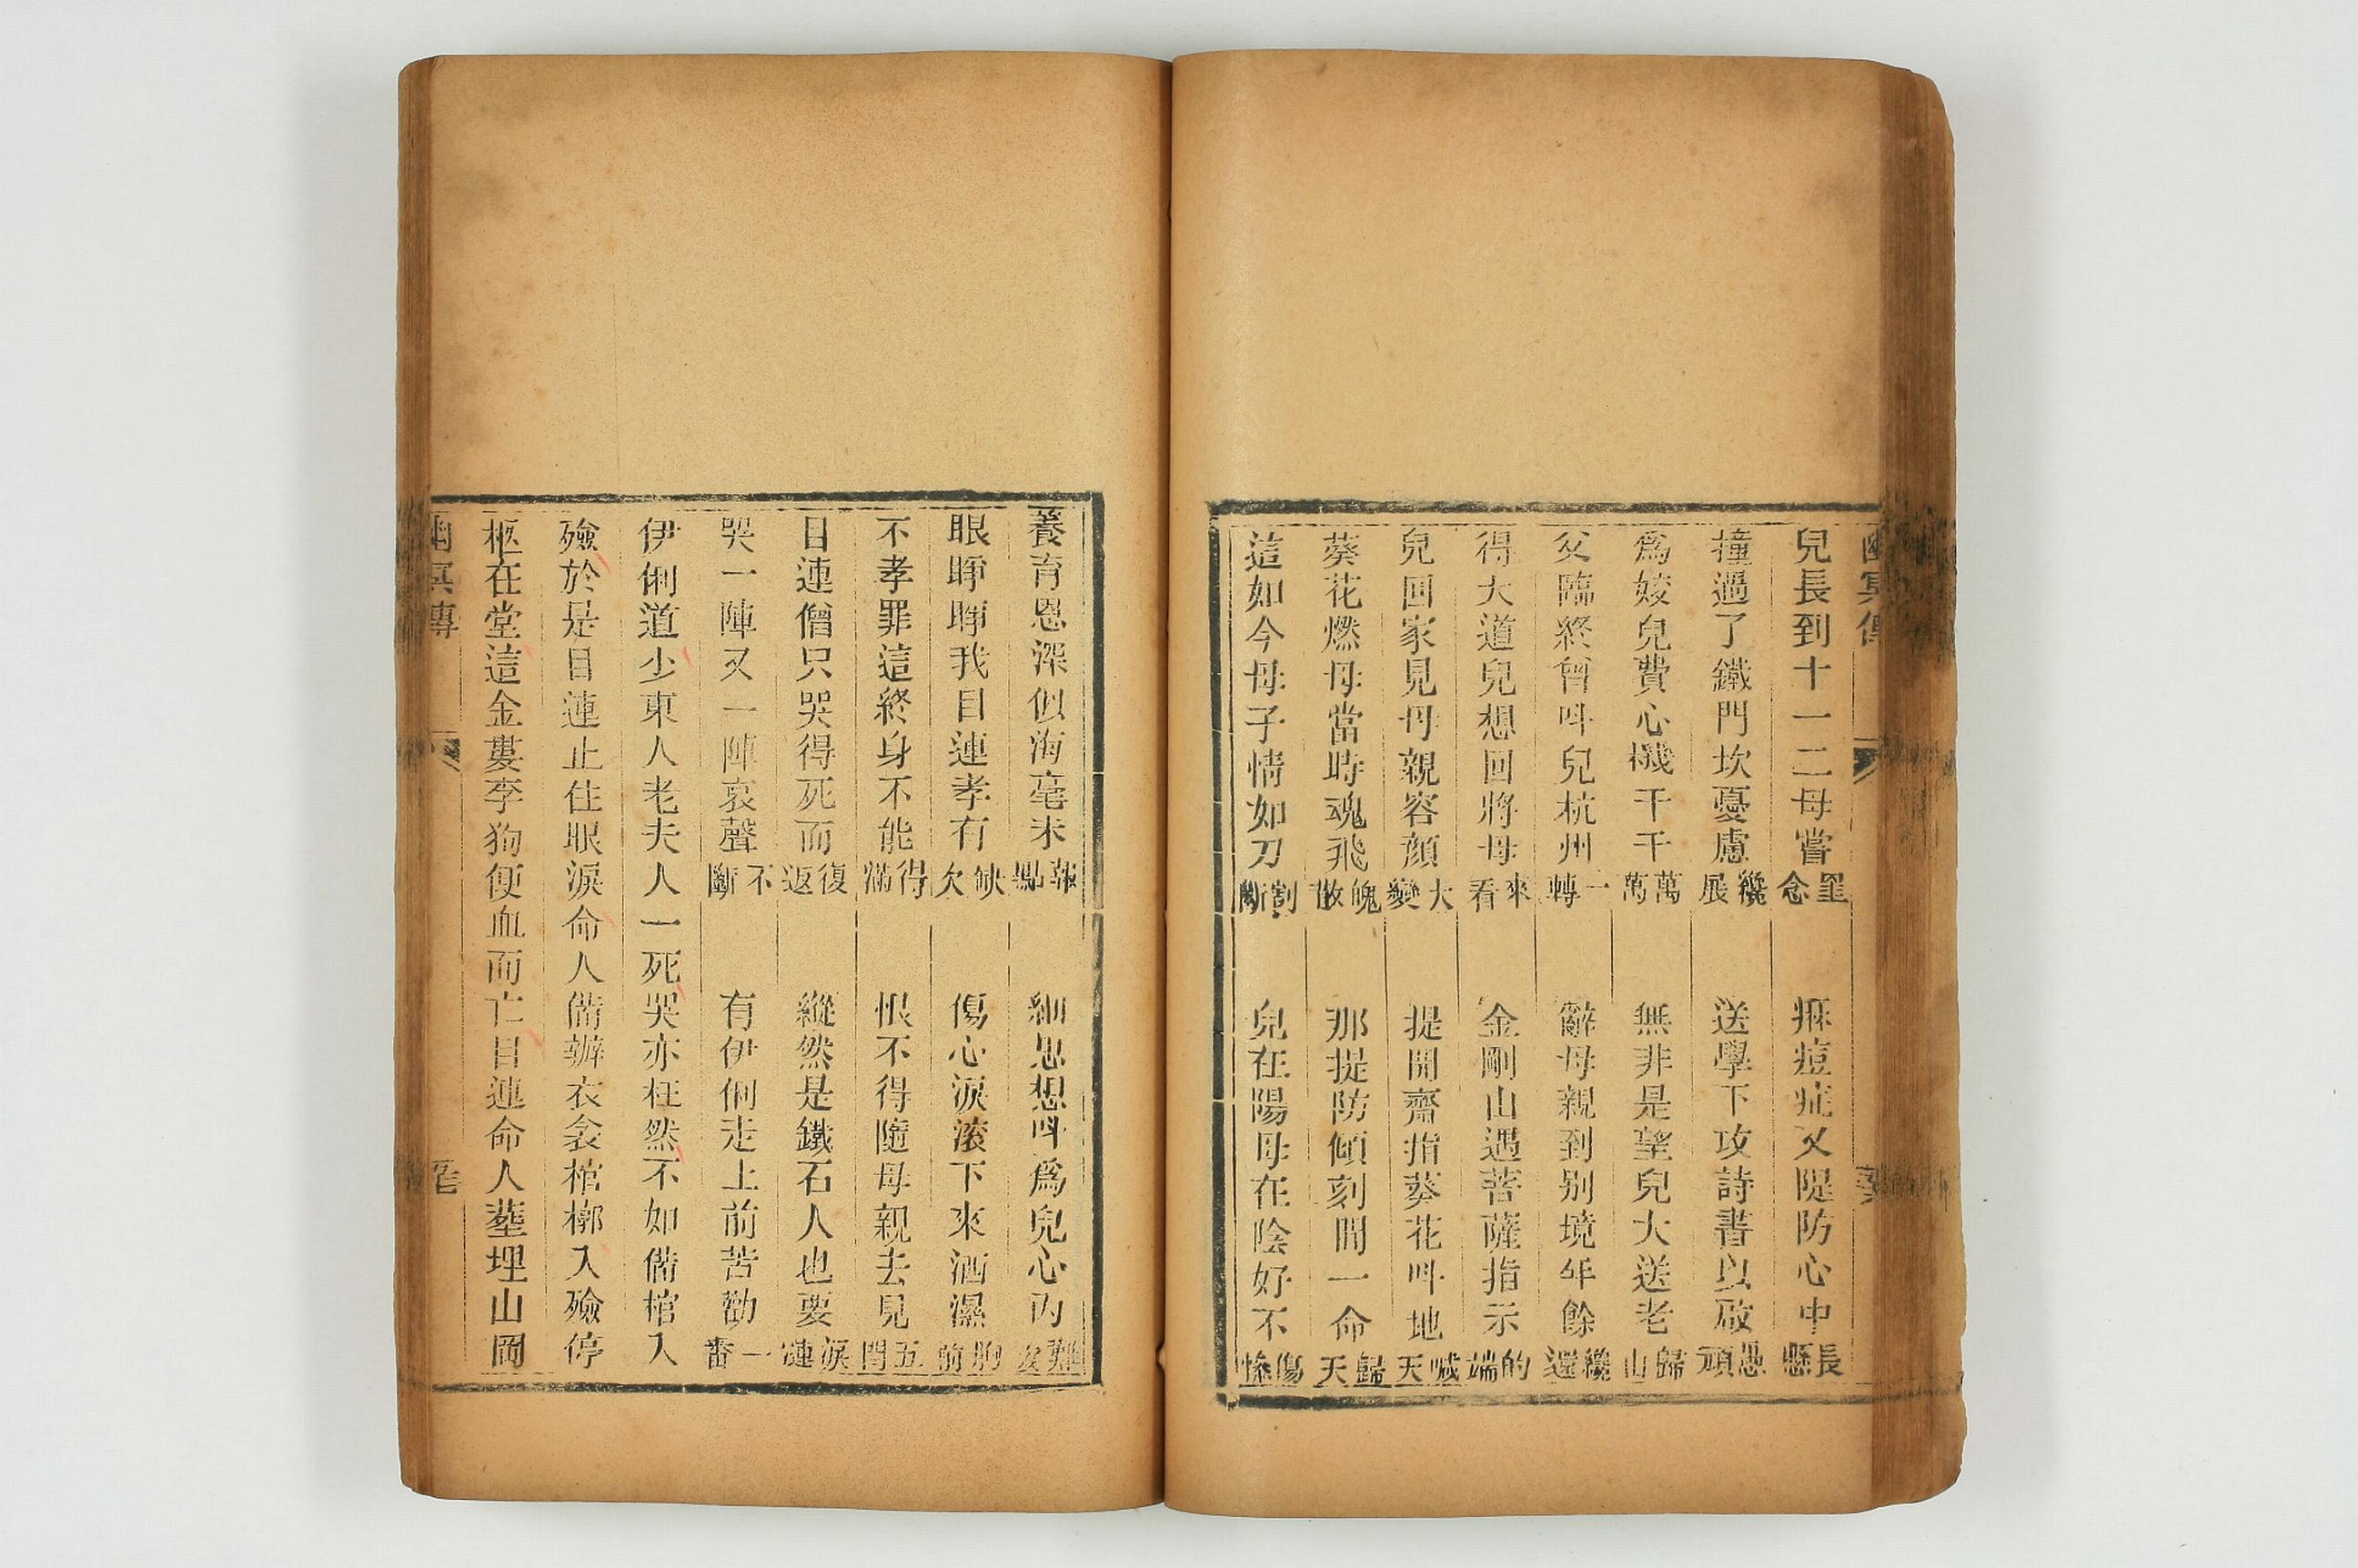 兒長到十一二母嘗罣念 痳痘症又隄防心中長懸
撞過了鐵門坎憂慮纔展 送學下攻詩書以啟愚頑
爲姣兒費心機千千萬萬 無非是望兒大送老歸山
父臨終曾呌兒杭州一轉 辭母親到别境年餘纔還
得大道兒想回將母來看 金剛山遇菩薩指示的端
兒回家見母親容顏大變 提開齋指葵花呌地喊天
葵花燃母當時魂飛魄散 那提防傾刻間一命歸天
這如今母子情如刀割斷 兒在陽母在陰好不傷慘
養育恩深似海毫未報點 細思想呌爲兒心内難安
眼睜睜我目連孝有缺欠 傷心淚滚下來洒濕胸前
不孝罪這終身不能得滿 恨不得隨母親去見五閻
目連僧只哭得死而復返 縱然是鐵石人也要淚漣
哭一陣又一陣哀聲不斷 有伊俐走上前苦勸一番
伊俐道少東人老夫人一死哭亦枉然不如備棺入
殮於是目連止住眼淚命人備辦衣衾棺槨入殮停
柩在堂這金婁李狗便血而亡目連命人塟埋山岡
幽冥傳